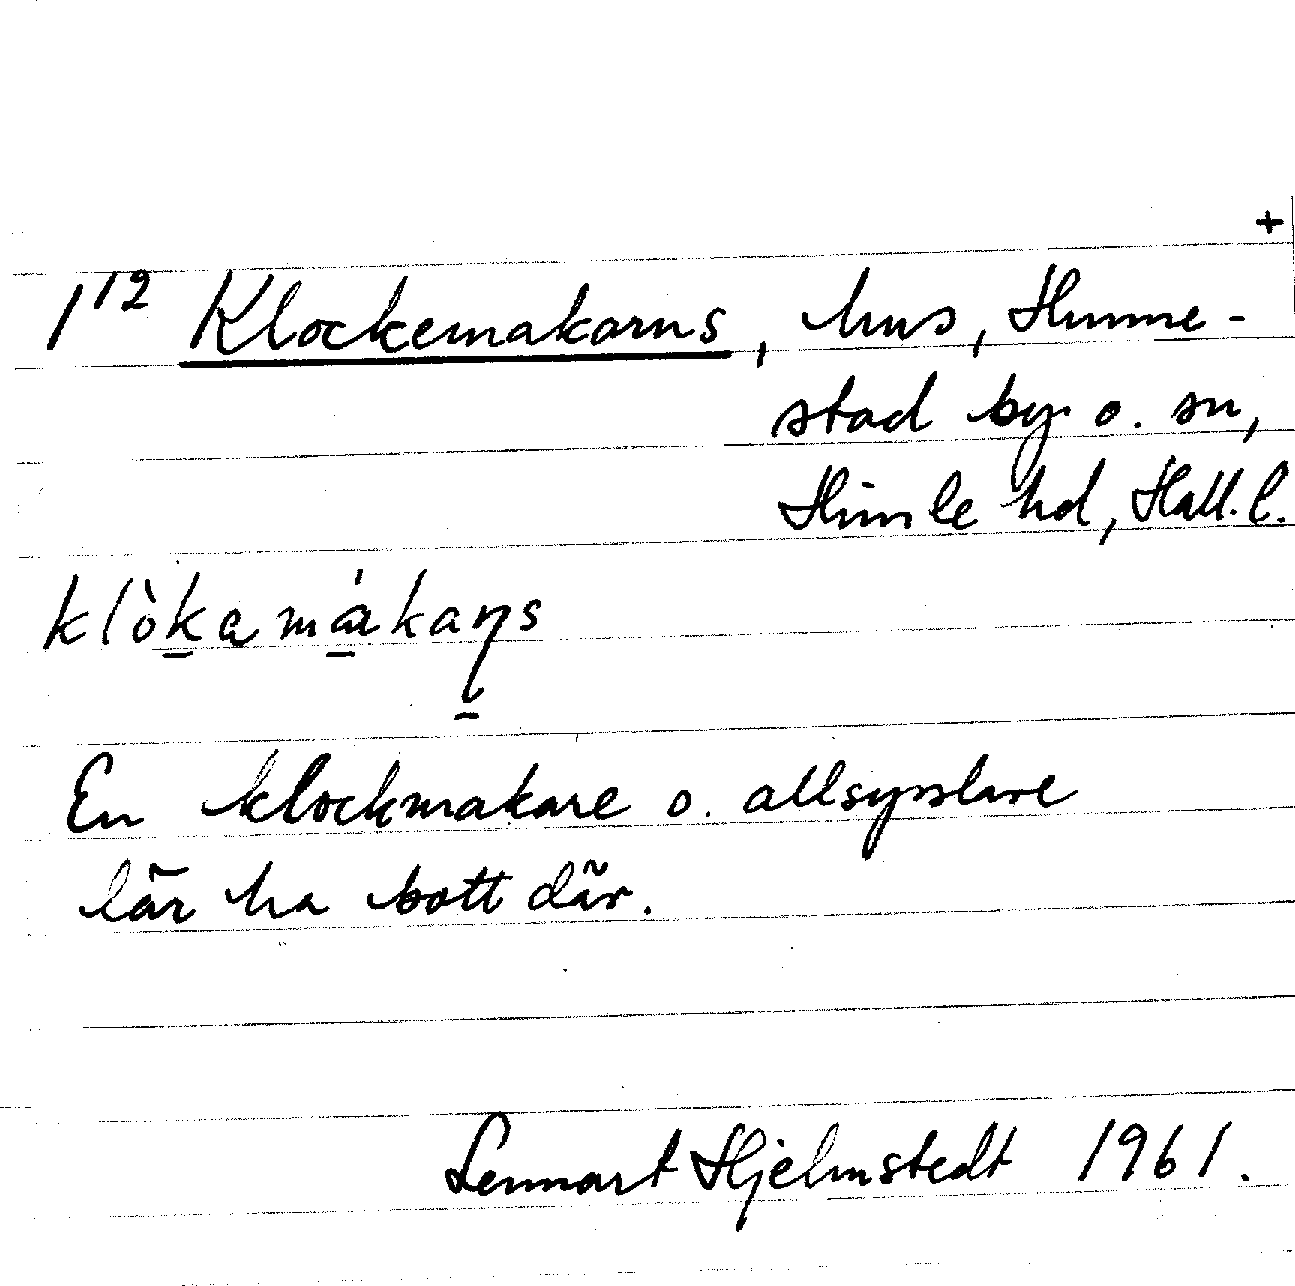 +
1¹² Klockemakarns, hus, Hunne-
stad by o. sn,
Himle hd, Hall. l.
klòkamákaɳs
En klockmakare o. allsysslare
lär ha bott där.
Lennart Hjelmstedt 1961.